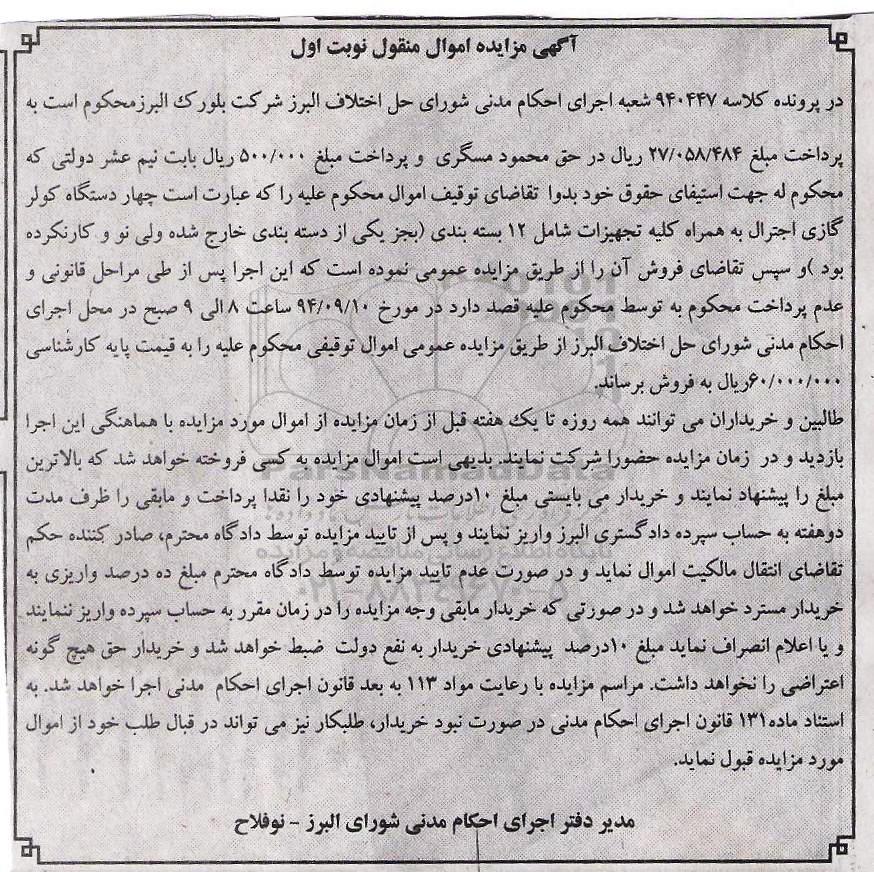 آگهی مزایده اموال منقول نوبت اول
در پرونده کلاسه ۹۴۰۴۴۷ شعبه اجرای احکام مدنی شورای حل اختلاف البرز شرکت بلورک البرزمحکوم است به
پرداخت مبلغ ۲۷/۰۵۸/۴۸۴ ریال در حق محمود مسگری و پرداخت مبلغ ۵۰۰/۰۰۰ ریال بابت نیم عشر دولتی که
محکوم له جهت استیفای حقوق خود بدوا تقاضای توقیف اموال محکوم علیه را که عبارت است چهار دستگاه کولر
گازی اجترال به همراه کلیه تجهیزات شامل ۱۲ بسته بندی (بجز یکی از دسته بندی خارج شده ولی نو و کارنکرده
بود )و سپس تقاضای فروش آن را از طریق مزایده عمومی نموده است که این اجرا پس از طی مراحل قانونی و
عدم پرداخت محکوم به توسط محکوم علیه قصد دارد در مورخ ۹۴/۰۹/۱۰ ساعت ۸ الی ۹ صبح در محل اجرای
احکام مدنی شورای حل اختلاف البرز از طریق مزایده عمومی اموال توقیفی محکوم علیه را به قیمت پایه کارشناسی
۶۰/۰۰۰/۰۰۰ریال به فروش برساند.
طالبین و خریداران می توانند همه روزه تا یک هفته قبل از زمان مزایده از اموال مورد مزایده با هماهنگی این اجرا
بازدید و در زمان مزایده حضورا شرکت نمایند. بدیهی است اموال مزایده به کسی فروخته خواهد شد که بالاترین
مبلغ را پیشنهاد نمایند و خریدار می بایستی مبلغ ۱۰درصد پیشنهادی خود را نقدا پرداخت و مابقی را ظرف مدت
دوهفته به حساب سپرده دادگستری البرز واریز نمایند و پس از تایید مزایده توسط دادگاه محترم، صادر کننده حکم
تقاضای انتقال مالکیت اموال نماید و در صورت عدم تایید مزایده توسط دادگاه محترم مبلغ ده درصد واریزی به
خریدار مسترد خواهد شد و در صورتی که خریدار مابقی وجه مزایده را در زمان مقرر به حساب سپرده واریز ننمایند
و یا اعلام انصراف نماید مبلغ ۱۰درصد پیشنهادی خریدار به نفع دولت ضبط خواهد شد و خریدار حق هیچ گونه
اعتراضی را نخواهد داشت. مراسم مزایده با رعایت مواد ۱۱۳ به بعد قانون اجرای احکام مدنی اجرا خواهد شد. به
استناد ماده۱۳۱ قانون اجرای احکام مدنی در صورت نبود خریدار، طلبکار نیز می تواند در قبال طلب خود از اموال
مورد مزایده قبول نماید.
مدیر دفتر اجرای احکام مدنی شورای البرز - نوفلاح
ParsNamadData
پایگاه اطلاع رسانی مناقصه و مزایده
۰۲۱-۸۸۳۴۹۶۷۰-۵